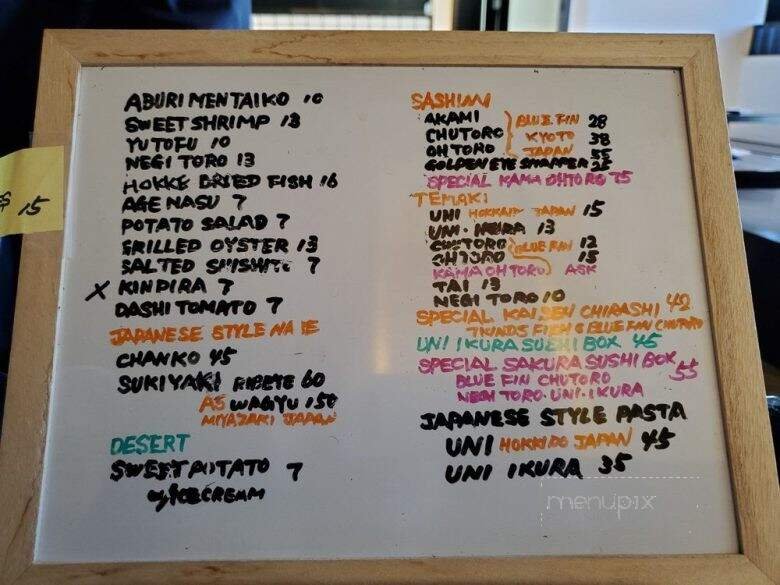 $ 15
ABURI MENTAIKO 10
SWEET SHRIMP 13
YUTOFU 10
NEGI TORO 13
HOKKE DRIED FISH 16
AGE NASU 7
POTATO SALAD 7
GRILLED OYSTER 13
SALTED SHISHITO 7
X KINPIRA 7
DASHI TOMATO 7
JAPANESE STYLE
CHANKO 45
SUKIYAKI RIBEYE 60
A5 WAGYU 150
MIYAZAKI JAPAN
DESERT
SWEET POTATO 7
w/ ICE CREAMM
SASHIMI
AKAMI BLUE FIN 28
CHUTORO KYOTO 38
OHTORO JAPAN 55
GOLDEN EYE SNAPPER 28
SPECIAL KAMA OHTORO 75
TEMAKI
UNI HOKKAIDO JAPAN 15
UNI・IKURA 13
CHUTORO BLUE FIN 12
OHTORO 15
KAMA OHTORO ASK
TAI 13
NEGI TORO 10
SPECIAL KAISEN CHIRASHI 42
7 KINDS FISH & BLUE FIN CHUTORO
UNI IKURA SUSHI BOX 45
SPECIAL SAKURA SUSHI BOX 55
BLUE FIN CHUTORO
NEGI TORO・UNI・IKURA
JAPANESE STYLE PASTA
UNI HOKKIDO JAPAN 45
UNI IKURA 35
menupix